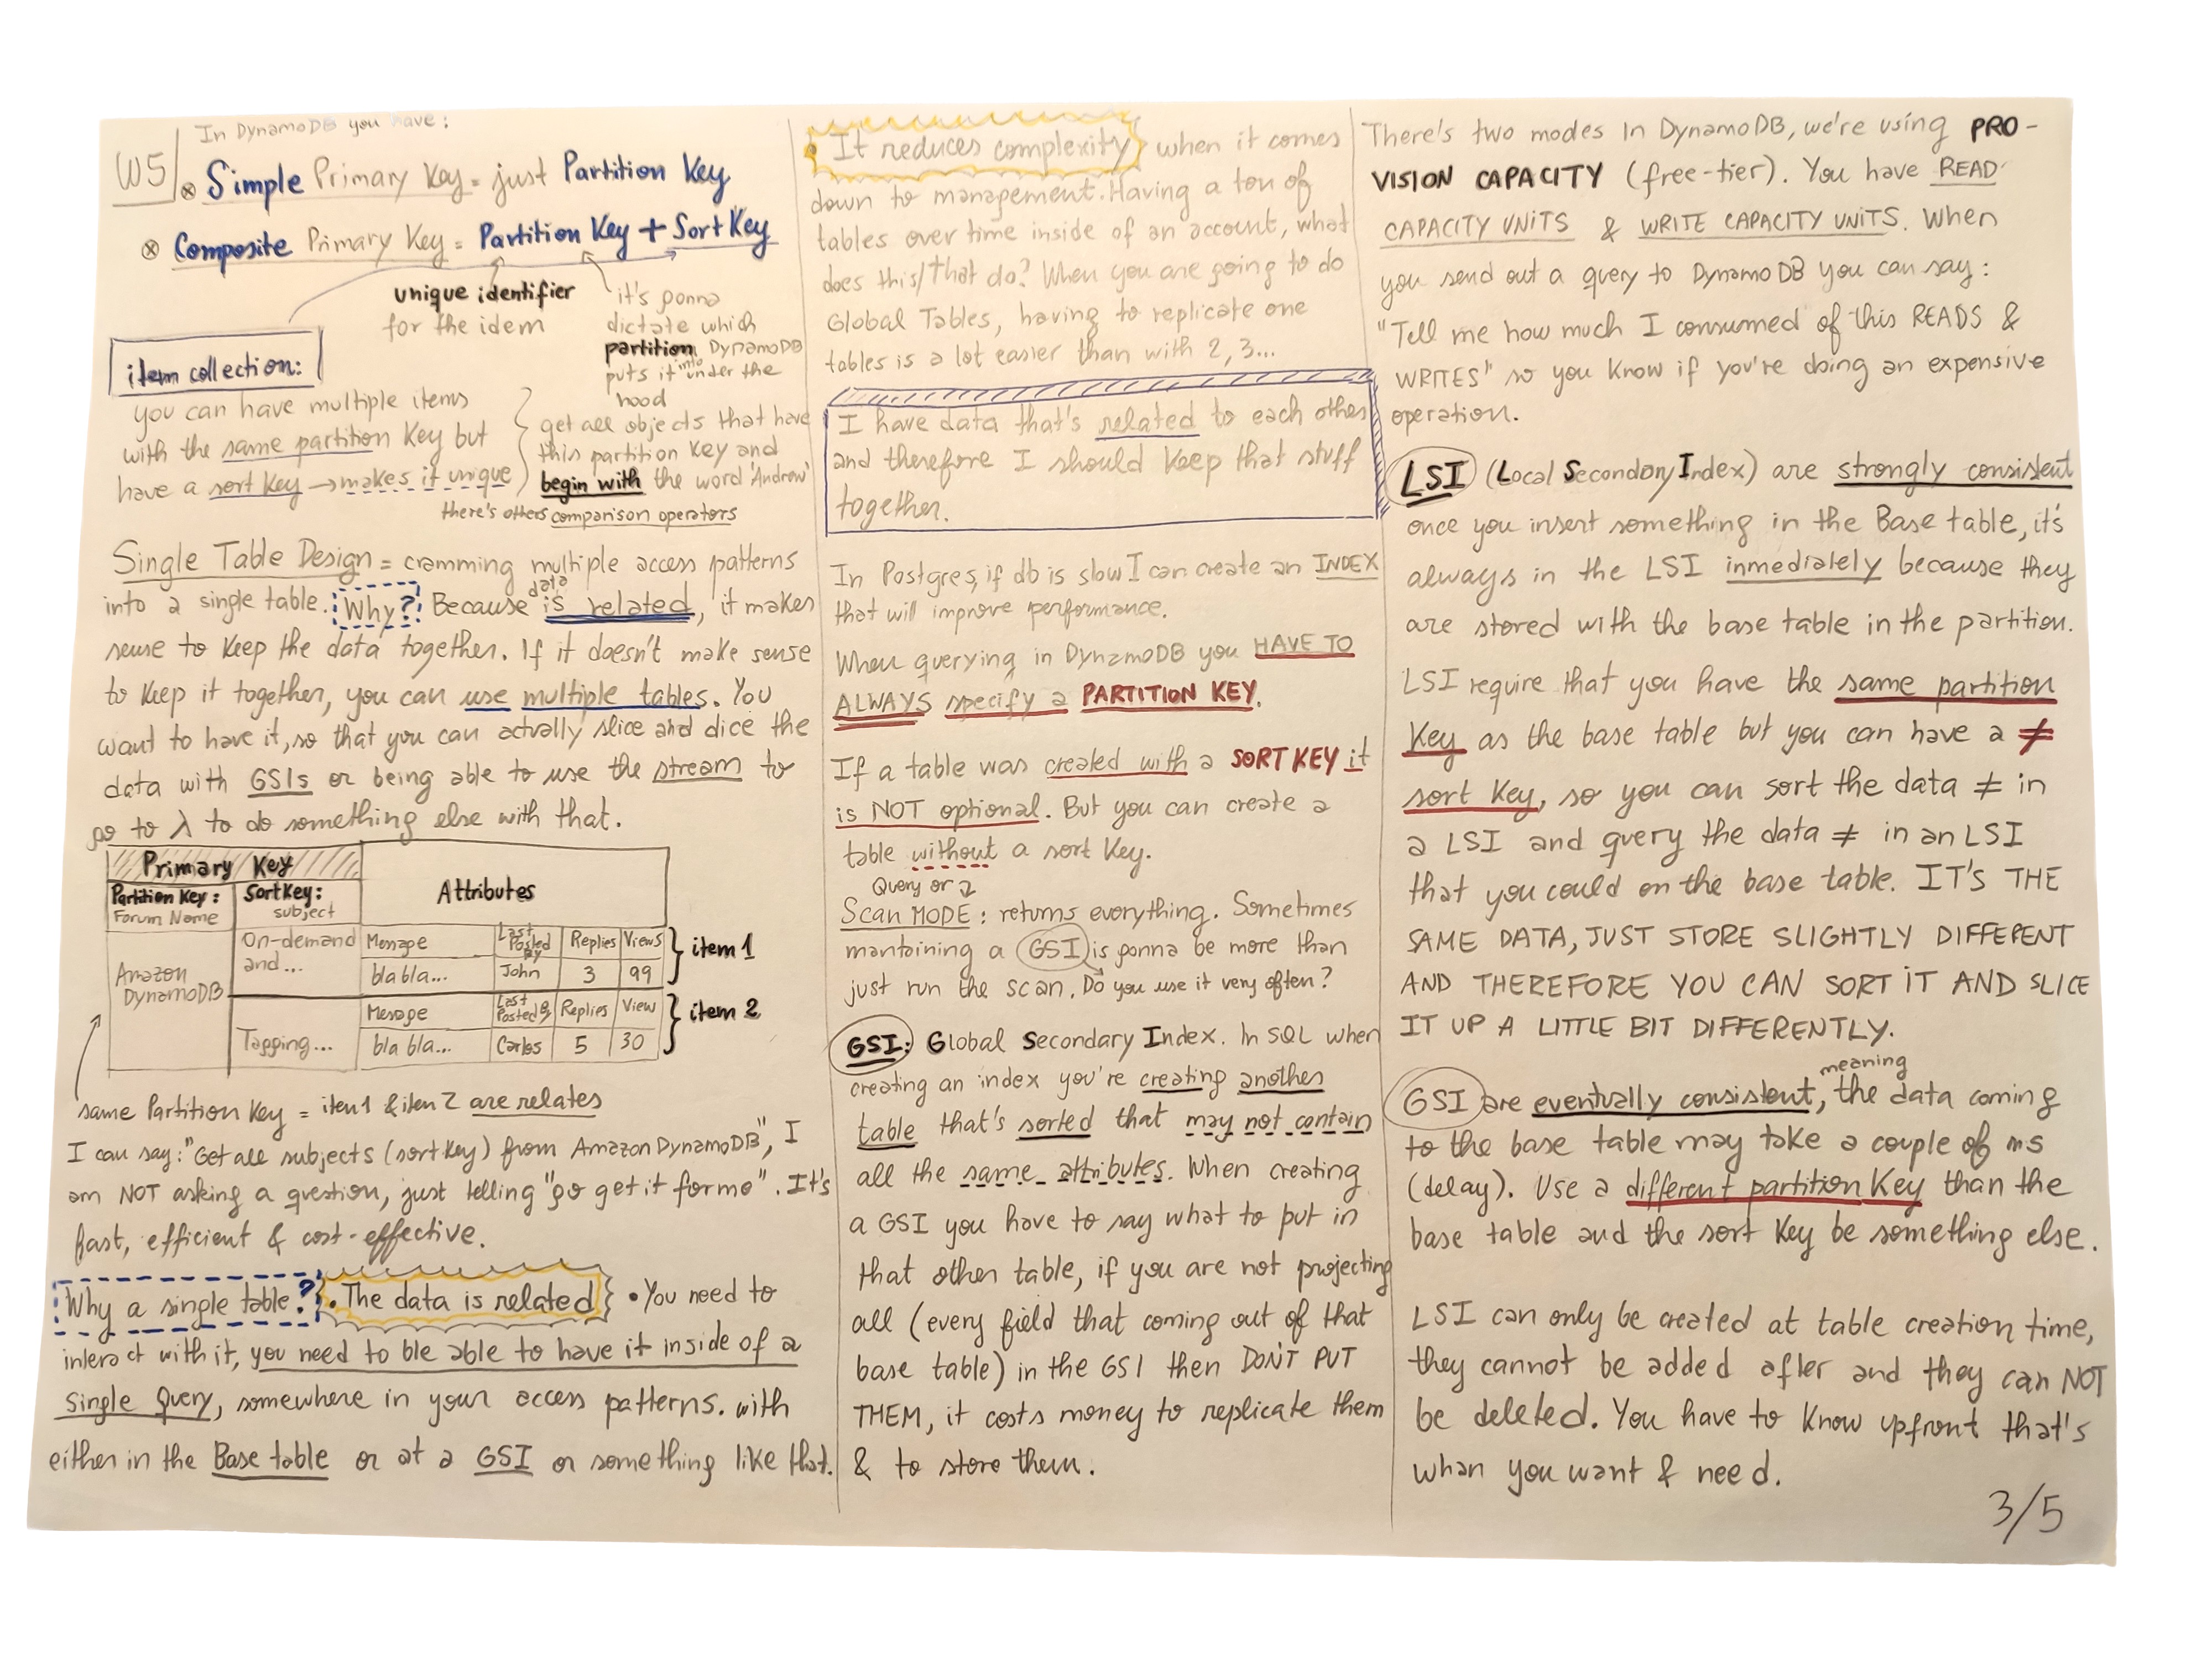 W5
In DynamoDB you have:
⊗ Simple Primary Key = just Partition Key
⊗ Composite Primary Key = Partition Key + Sort Key
unique identifier
for the idem
it's gonna
dictate which
partition DynamoDB
puts it into under the
hood
item collection:
you can have multiple items
with the same partition Key but
have a sort Key → makes it unique
get all objects that have
this partition Key and
begin with the word 'Andrew'
there's others comparison operators
Single Table Design = cramming multiple access patterns
into a single table. Why? Because data is related, it makes
sense to Keep the data together. If it doesn't make sense
to Keep it together, you can use multiple tables. You
want to have it, so that you can actually slice and dice the
data with GSIs or being able to use the stream to
go to λ to do something else with that.
Primary Key
Attributes
Partition Key: Sort Key:
Forum Name subject
Amazon
DynamoDB
On-demand
and...
Message Last Posted By Replies Views
bla bla... John 3 99
item 1
Tagging...
Message Last Posted By Replies View
bla bla... Carlos 5 30
item 2
same Partition Key = item1 & item 2 are relates
I can say: "Get all subjects (sort Key) from Amazon DynamoDB", I
am NOT asking a question, just telling "go get it for me". It's
fast, efficient & cost-effective.
Why a single table? • The data is related • You need to
interact with it, you need to ble able to have it inside of a
single Query, somewhere in your access patterns. with
either in the Base table or at a GSI or something like that.
• It reduces complexity when it comes
down to management. Having a ton of
tables over time inside of an account, what
does this/that do? When you are going to do
Global Tables, having to replicate one
tables is a lot easier than with 2, 3...
I have data that's related to each other
and therefore I should Keep that stuff
together.
In Postgres, if db is slow I can create an INDEX
that will improve performance.
When querying in DynamoDB you HAVE TO
ALWAYS specify a PARTITION KEY.
If a table was created with a SORT KEY it
is NOT optional. But you can create a
table without a sort Key.
Query or
Scan MODE: returns everything. Sometimes
mantaining a GSI is gonna be more than
just run the scan. Do you use it very often?
GSI: Global Secondary Index. In SQL when
creating an index you're creating another
table that's sorted that may not contain
all the same attributes. When creating
a GSI you have to say what to put in
that other table, if you are not projecting
all (every field that coming out of that
base table) in the GSI then DON'T PUT
THEM, it costs money to replicate them
& to store them.
There's two modes in DynamoDB, we're using PRO-
VISION CAPACITY (free-tier). You have READ
CAPACITY UNITS & WRITE CAPACITY UNITS. When
you send out a query to DynamoDB you can say:
"Tell me how much I consumed of this READS &
WRITES" so you Know if you're doing an expensive
operation.
LSI (Local Secondary Index) are strongly consistent
once you insert something in the Base table, it's
always in the LSI inmediately because they
are stored with the base table in the partition.
LSI require that you have the same partition
Key as the base table but you can have a ≠
sort Key, so you can sort the data ≠ in
a LSI and query the data ≠ in an LSI
that you could on the base table. IT'S THE
SAME DATA, JUST STORE SLIGHTLY DIFFERENT
AND THEREFORE YOU CAN SORT IT AND SLICE
IT UP A LITTLE BIT DIFFERENTLY.
GSI are eventually consistent, meaning the data coming
to the base table may take a couple of ms
(delay). Use a different partition Key than the
base table and the sort Key be something else.
LSI can only be created at table creation time,
they cannot be added after and they can NOT
be deleted. You have to Know upfront that's
whan you want & need.
3/5